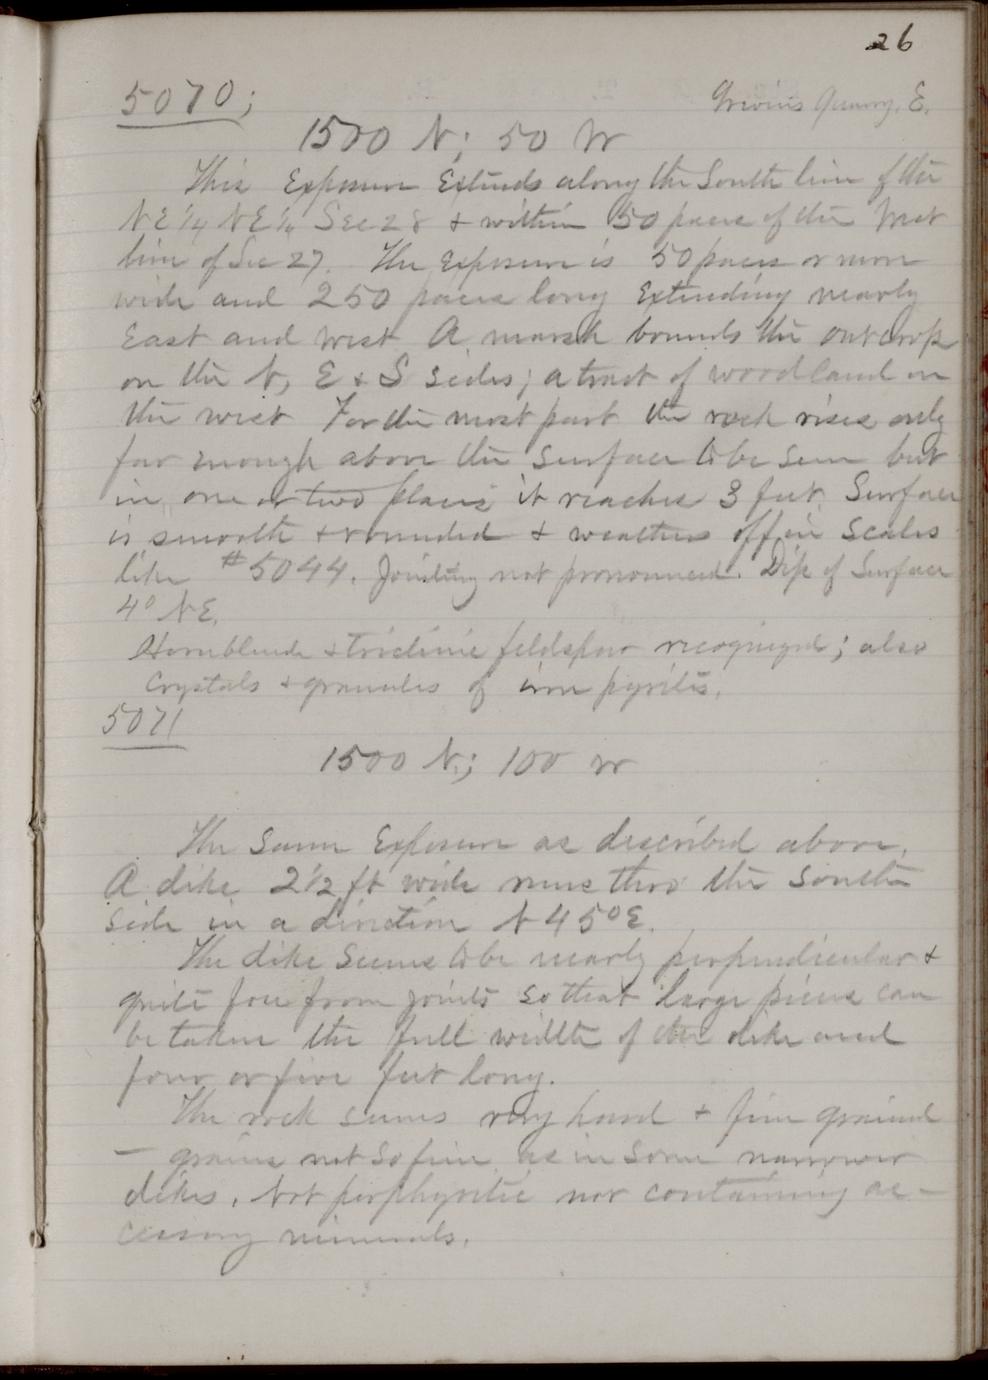 26
5070;
Quarry. E.
1500 N; 50 W
This Exposure Extends along the South line of the
NE¼ NE¼ Sec 28 & within 50 paces of the West
line of Sec 27. The Exposure is 50 paces or more
wide and 250 paces long Extending nearly
East and West A marsh bounds the outcrop
on the N, E & S sides; a tract of woodland on
the west For the most part the rock rises only
far enough above the surface to be seen but
in one or two places it reaches 3 feet. Surface
is smooth & rounded & weathers off in scales
like #5044. Jointing not pronounced. Dip of Surface
4° NE.
Hornblende & triclinic feldspar recognized; also
crystals & granules of iron pyrites.
5071
1500 N.; 100 W
The Same Exposure as described above.
A dike 2½ ft wide runs thro' the South
side in a direction N 45° E.
The dike seems to be nearly perpendicular &
quite free from joints so that large pieces can
be taken the full width of the dike and
four or five feet long.
The rock seems very hard & fine grained
— grains not so fine as in some narrower
dikes. Not porphyritic nor containing ac-
cessory minerals.